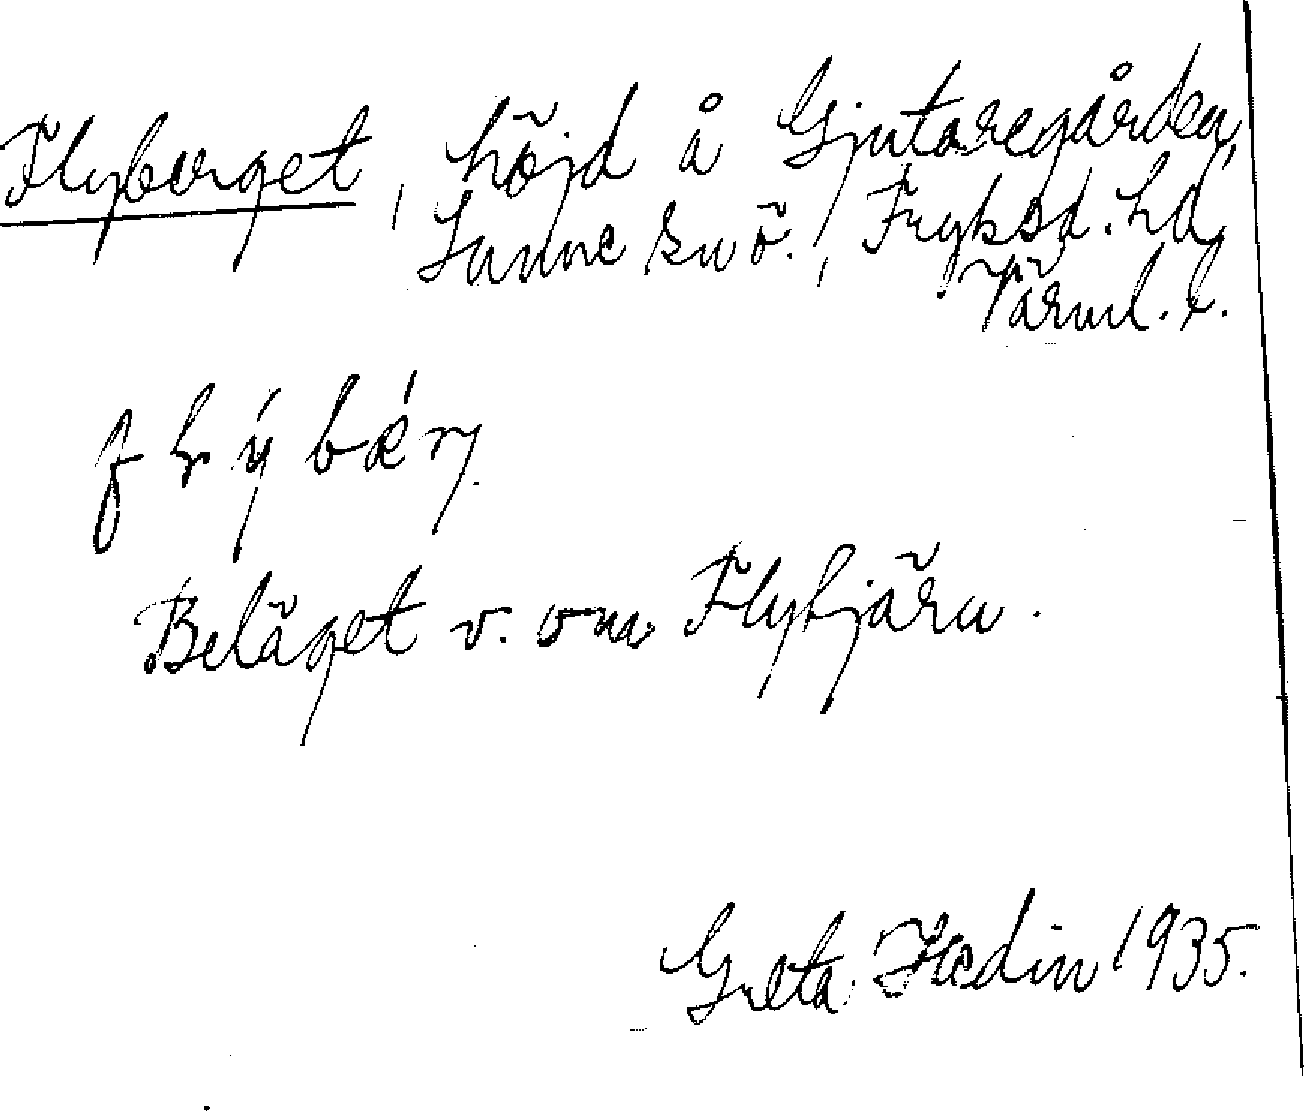 Flyberget, höjd å Gjutaregården,
Sunne sn ö., Fryksd. hd,
Värml. l.
Beläget v. om Flytjärn.
Greta Hedin 1935.